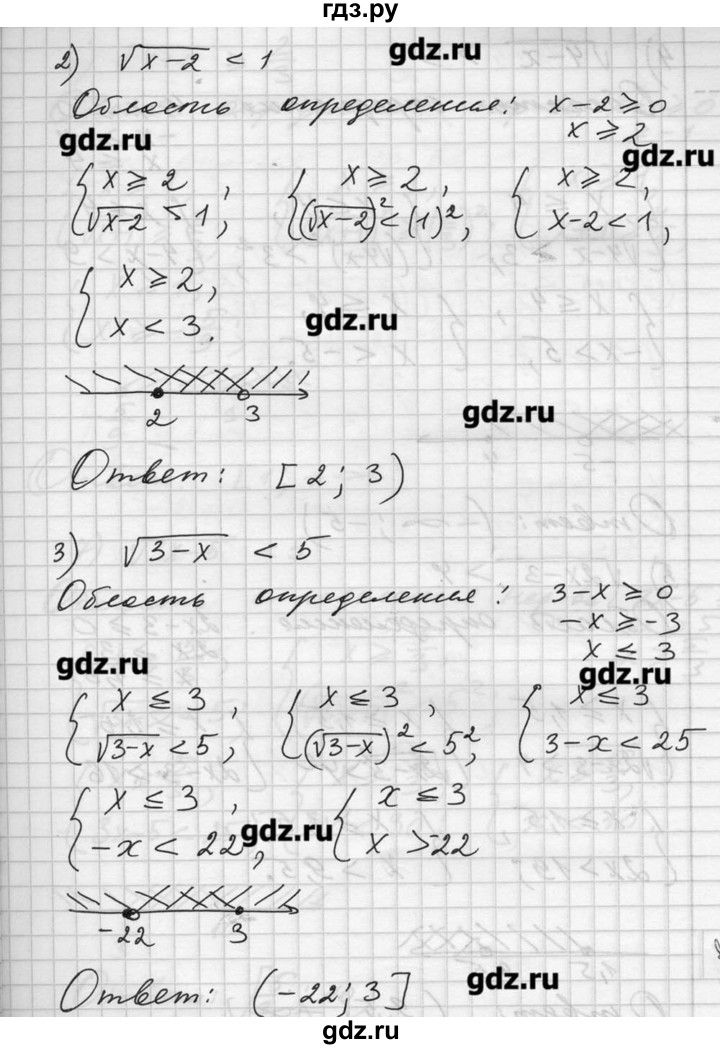 гдз.ру
2) √x-2 < 1 gdz.ru
Область определения: x-2 ≥ 0
gdz.ru x ≥ 2
gdz.ru
{ x ≥ 2, { x ≥ 2, { x ≥ 2,
√x-2 < 1; (√x-2)² < (1)², x-2 < 1,
{ x ≥ 2,
x < 3. gdz.ru
2 3
gdz.ru
Ответ: [2; 3)
3) √3-x < 5
Область определения: 3-x ≥ 0
-x ≥ -3
gdz.ru x ≤ 3
gdz.ru
{ x ≤ 3, { x ≤ 3, { x ≤ 3
√3-x < 5, (√3-x)² < 5², 3-x < 25
{ x ≤ 3, { x ≤ 3
-x < 22, gdz.ru x > -22
-22 3
gdz.ru
Ответ: (-22; 3]
gdz.ru